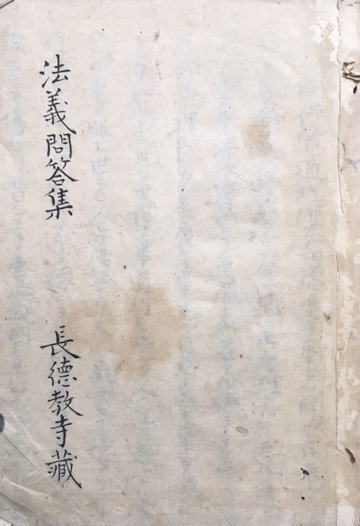 法義問答集
長德教寺藏